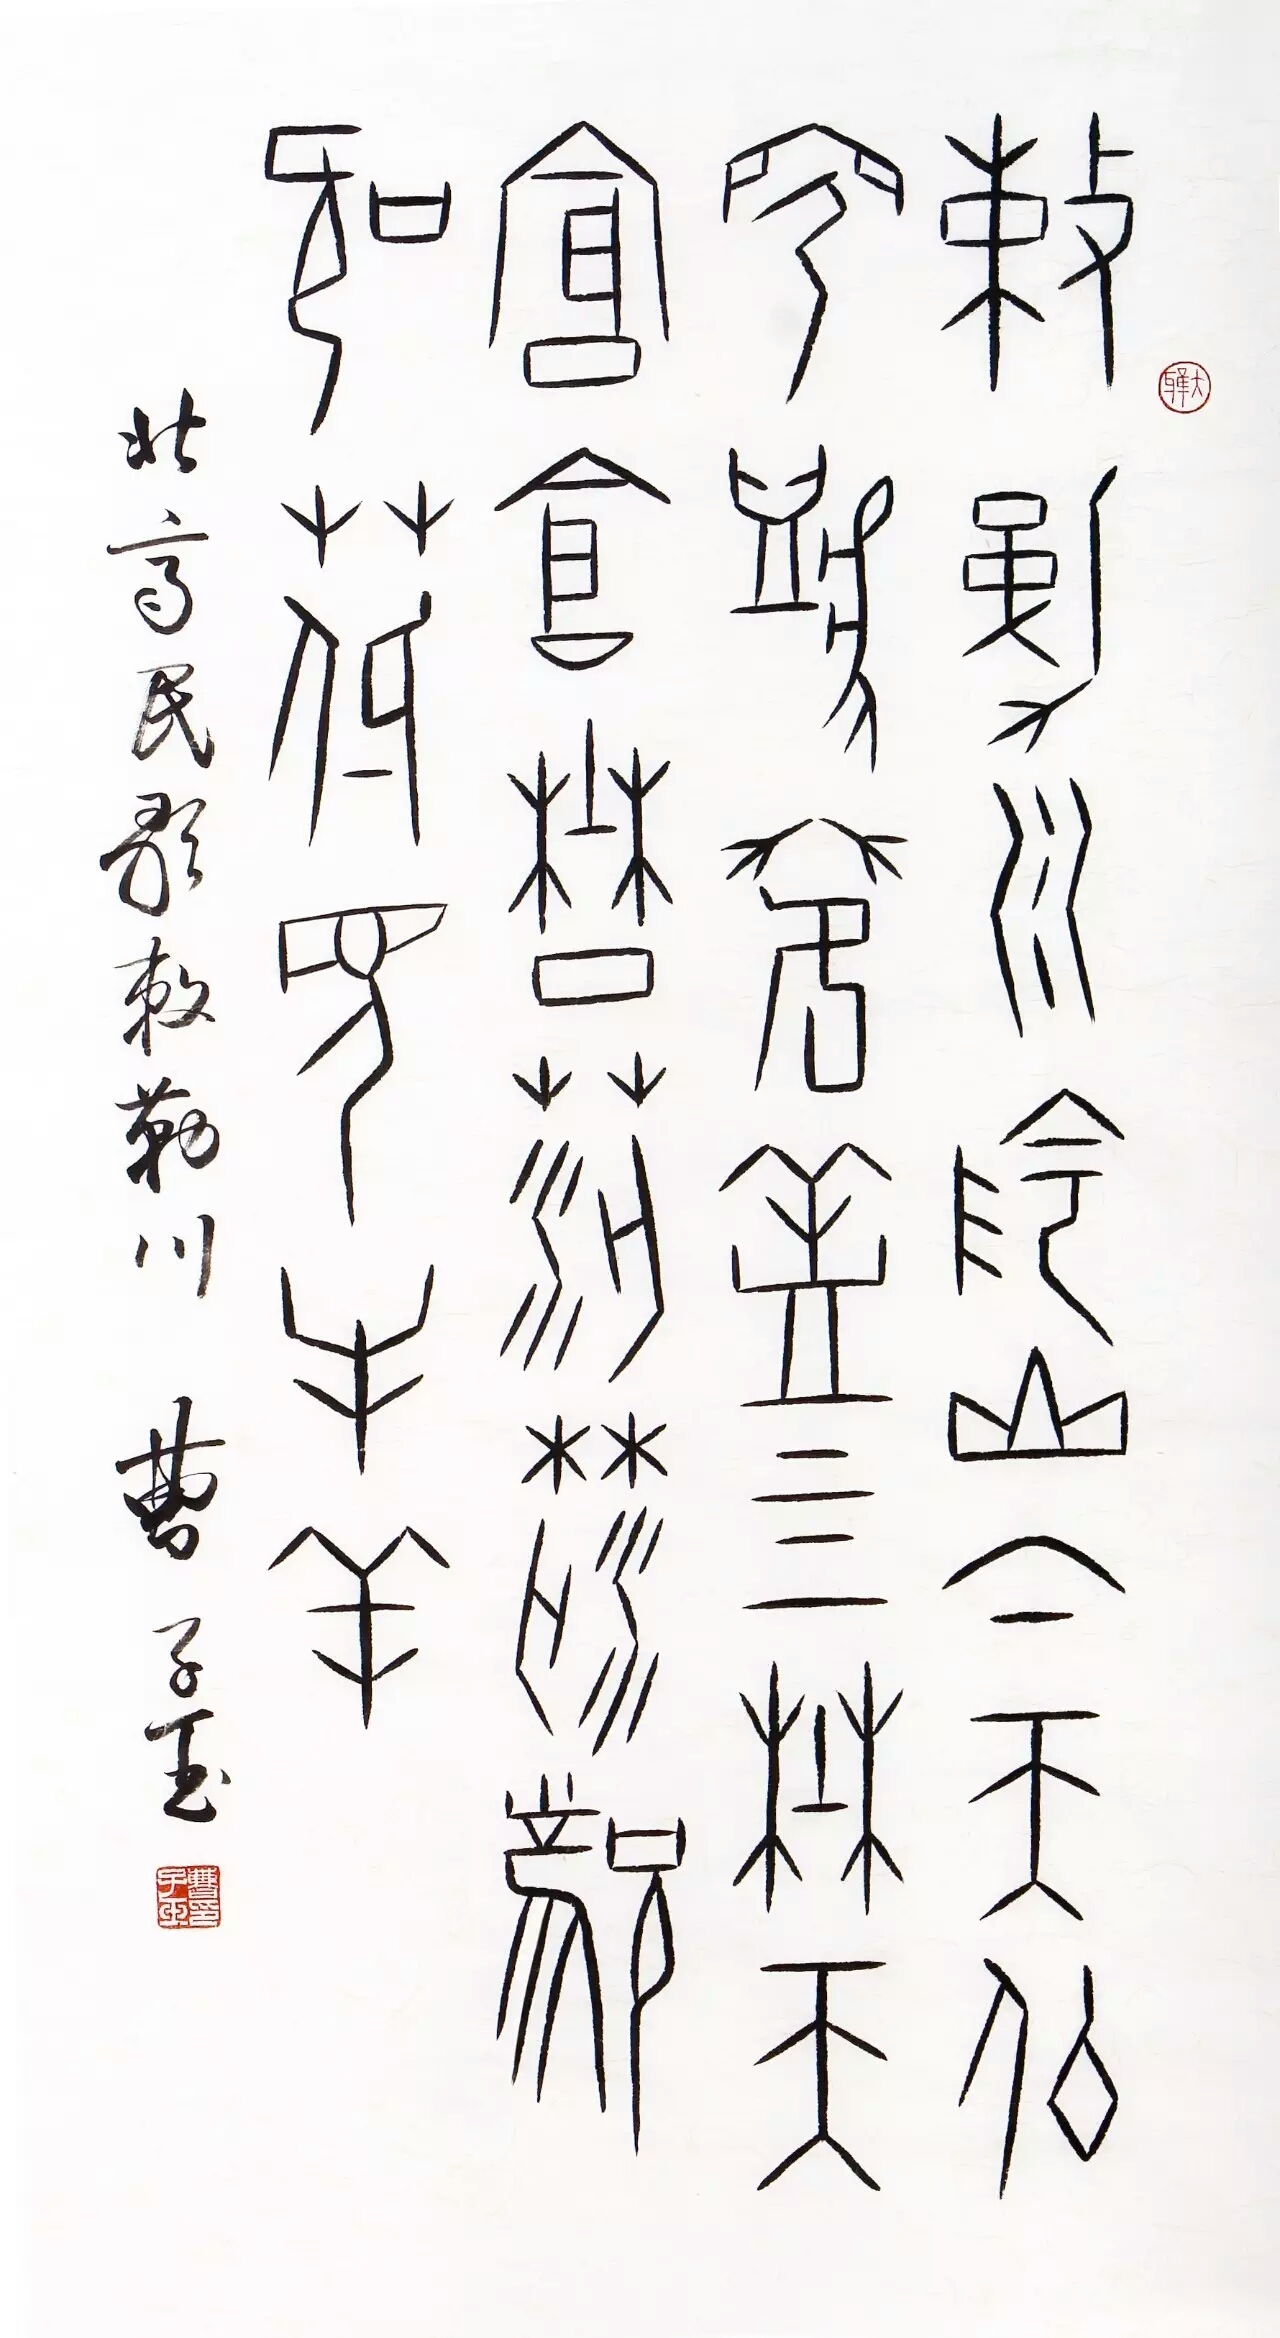 敕勒川陰山下天似
穹廬籠蓋四野天
蒼蒼野茫茫風
吹草低見牛羊
北齊民歌敕勒川 曹子玉